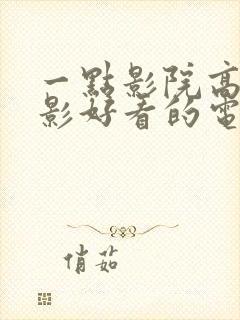 一點影院高
影好看的電
俏茹